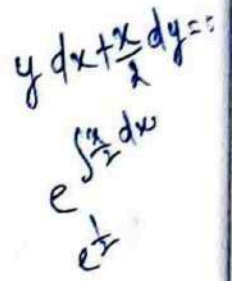 y dx + x/2 dy =
e^∫x/2 dx
e^1/2